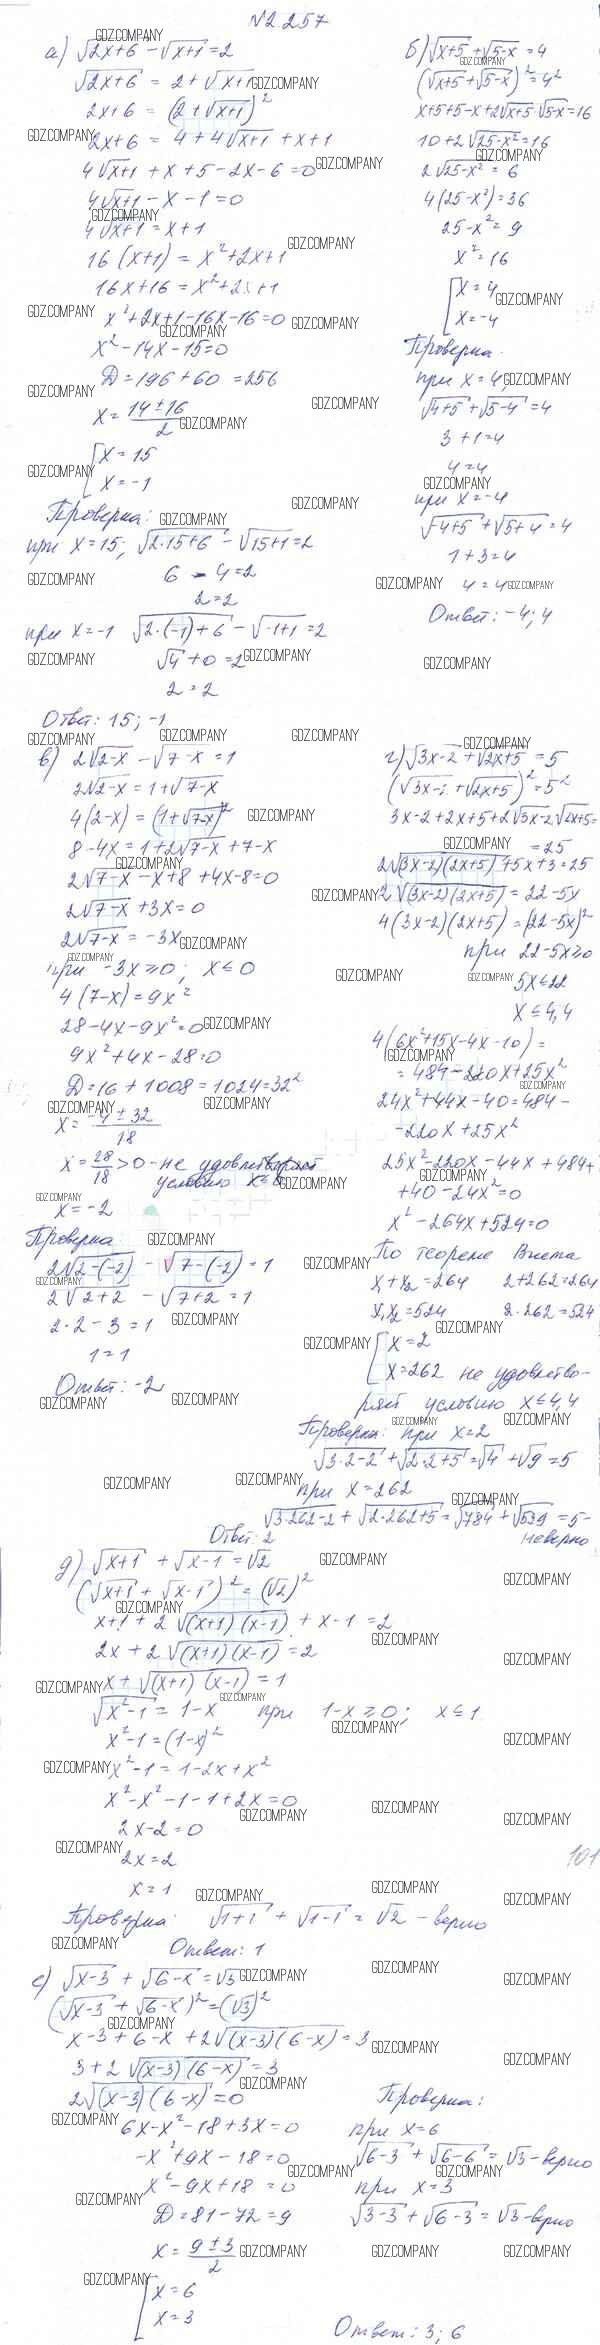 №2.257
а) √2x+6 − √x+1 = 2
√2x+6 = 2 + √x+1
2x+6 = (2+√x+1)²
2x+6 = 4 + 4√x+1 + x+1
4√x+1 + x + 5 − 2x − 6 = 0
4√x+1 − x − 1 = 0
4√x+1 = x+1
16(x+1) = x²+2x+1
16x+16 = x²+2x+1
x²+2x+1−16x−16=0
x²−14x−15=0
D=196+60=256
x = (14±16)/2
[ x=15
x=−1
Проверка:
при x=15; √2·15+6 − √15+1 = 2
6 − 4 = 2
2=2
при x=−1 √2·(−1)+6 − √−1+1 = 2
√4 + 0 = 2
2=2
Ответ: 15; −1
б) √x+5 + √5−x = 4
(√x+5 + √5−x)² = 4²
x+5+5−x+2√x+5·√5−x=16
10+2√25−x²=16
2√25−x² = 6
4(25−x²)=36
25−x²=9
x²=16
[ x=4
x=−4
Проверка:
при x=4;
√4+5 + √5−4 = 4
3+1=4
4=4
при x=−4
√−4+5 + √5+4 = 4
1+3=4
4=4
Ответ: −4; 4
в) 2√2−x − √7−x = 1
2√2−x = 1+√7−x
4(2−x) = (1+√7−x)²
8−4x = 1+2√7−x + 7−x
2√7−x − x + 8 + 4x − 8 = 0
2√7−x + 3x = 0
2√7−x = −3x
при −3x ≥ 0; x ≤ 0
4(7−x) = 9x²
28−4x−9x²=0
9x²+4x−28=0
D=16+1008=1024=32²
x = (−4±32)/18
x = 28/18 > 0 − не удовлетворяет
условию x ≤ 0
x=−2
Проверка
2√2−(−2) − √7−(−2) = 1
2√2+2 − √7+2 = 1
2·2−3=1
1=1
Ответ: −2
г) √3x−2 + √2x+5 = 5
(√3x−2 + √2x+5)² = 5²
3x−2+2x+5+2√3x−2 √2x+5=
= 25
2√(3x−2)(2x+5) + 5x+3=25
2√(3x−2)(2x+5) = 22−5x
4(3x−2)(2x+5) = (22−5x)²
при 22−5x≥0
5x≤22
x≤4,4
4(6x²+15x−4x−10) =
= 484−220x+25x²
24x²+44x−40=484−
−220x+25x²
25x²−220x−44x+484+
+40−24x²=0
x²−264x+524=0
По теореме Виета
x₁+x₂=264 2+262=264
x₁x₂=524 2·262=524
[ x=2
x=262 не удовлетво-
ряет условию x≤4,4
Проверка: при x=2
√3·2−2 + √2·2+5 = √4 + √9 = 5
при x=262
√3·262−2 + √2·262+5 = √784 + √539 = 5 −
неверно
Ответ: 2
д) √x+1 + √x−1 = √2
(√x+1 + √x−1)² = (√2)²
x+1+2√(x+1)(x−1) + x−1 = 2
2x+2√(x+1)(x−1) = 2
x+√(x+1)(x−1) = 1
√x²−1 = 1−x при 1−x≥0; x≤1
x²−1=(1−x)²
x²−1=1−2x+x²
x²−x²−1−1+2x=0
2x−2=0
2x=2
x=1
101
Проверка: √1+1 + √1−1 = √2 − верно
Ответ: 1
е) √x−3 + √6−x = √3
(√x−3 + √6−x)² = (√3)²
x−3+6−x+2√(x−3)(6−x) = 3
3+2√(x−3)(6−x) = 3
2√(x−3)(6−x) = 0
6x−x²−18+3x=0
−x²+9x−18=0
x²−9x+18=0
D=81−72=9
x = (9±3)/2
[ x=6
x=3
Проверка:
при x=6
√6−3 + √6−6 = √3 − верно
при x=3
√3−3 + √6−3 = √3 − верно
Ответ: 3; 6
GDZ.COMPANY